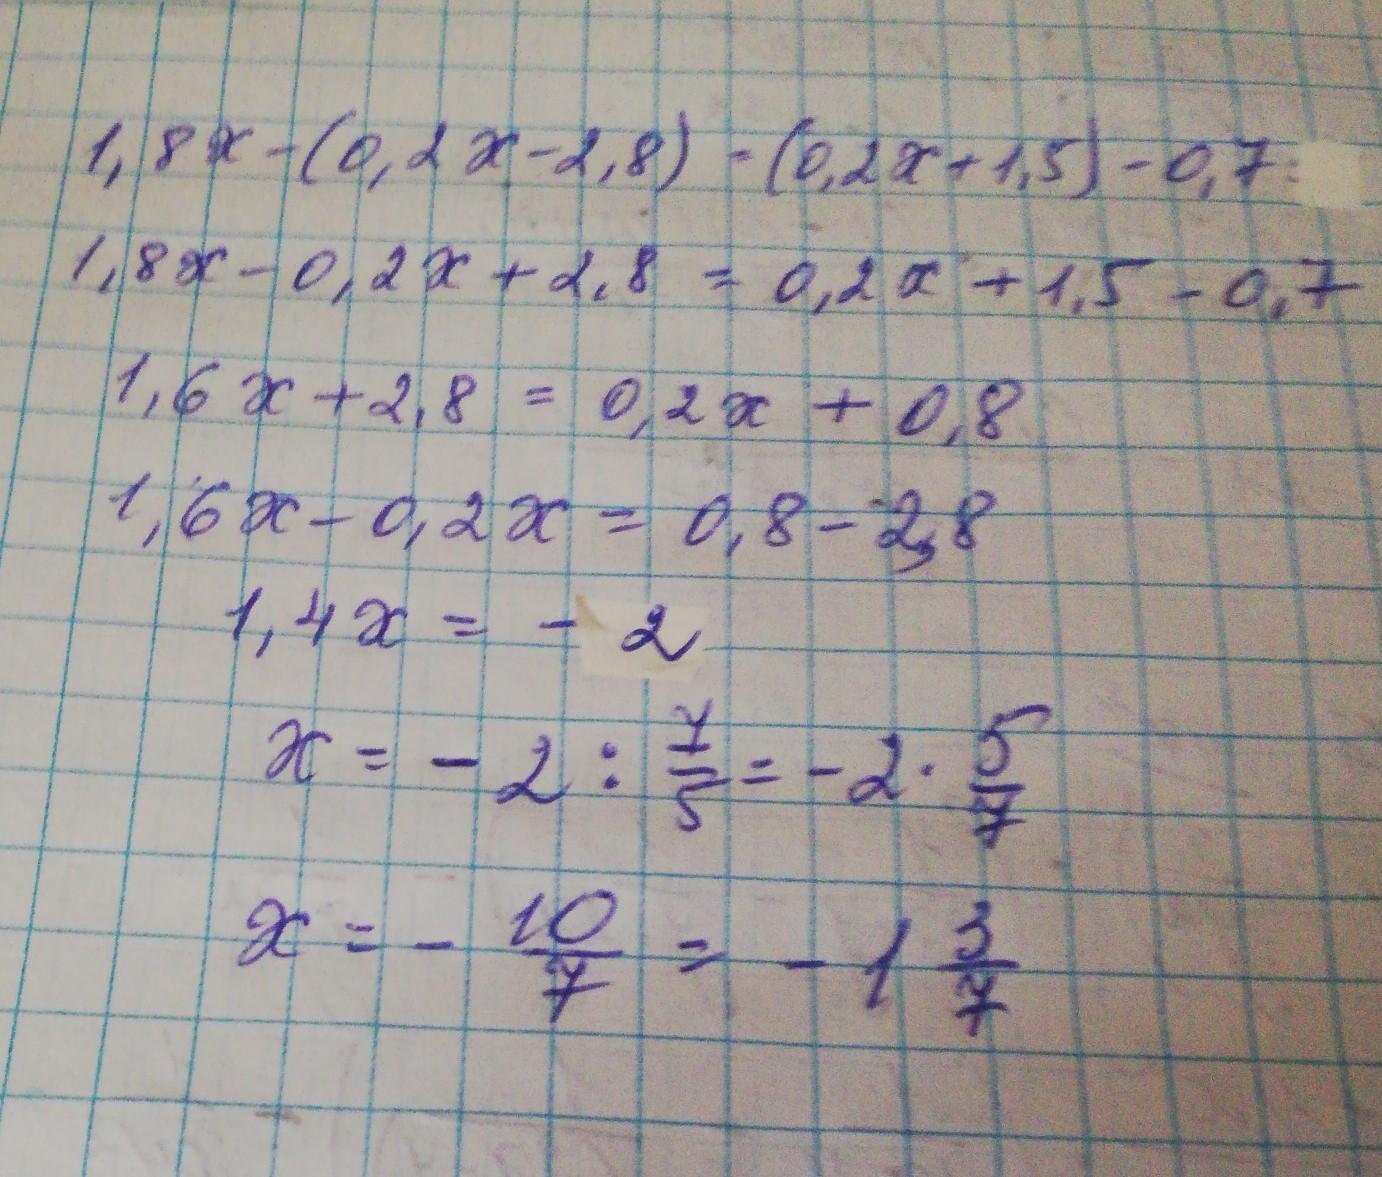 1,8x-(0,2x-2,8) - (0,2x+1,5)-0,7
1,8x-0,2x+2,8 = 0,2x+1,5-0,7
1,6x+2,8 = 0,2x + 0,8
1,6x-0,2x = 0,8-2,8
1,4x = -2
x = -2 : 7/5 = -2 · 5/7
x = - 10/7 = - 1 3/7